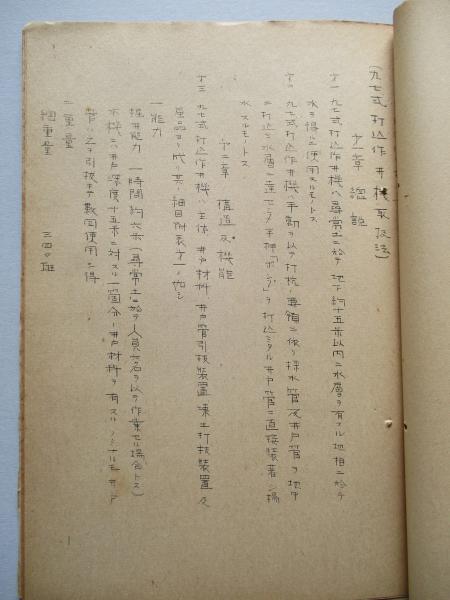 (九七式打込作井機取扱法)
第一章 概説
第一 九七式打込作井機ハ尋常土ニ於テ地下約十五米以内ニ水層ヲ有スル地相ニ於テ
水ヲ得ルニ使用スルモノトス
第二 九七式打込作井機ハ手動ヲ以テ打杭ノ要領ニ依リ採水管及井戸管ヲ地中
ニ打込ミ水層ニ達セシメ手押「ポンプ」ヲ打込ミタル井戸管ニ直接装著シ揚
水スルモノトス
第二章 構造及機能
第三 九七式打込作井機ハ主体、井戸材料、井戸管引抜装置、凍土打抜装置及
属品ヨリ成リ其ノ細目附表第一ノ如シ
一 能力
掘井能力 一時間約六米(尋常土ニ於テ人員六名ヲ以テ作業セル場合トス)
本機ニハ井戸深度十五米ニ対スル一箇分ノ井戸材料ヲ有スルノミナルモ井戸
管ハ之ヲ引抜キテ数回使用シ得
二 重量
総重量 三四〇瓩